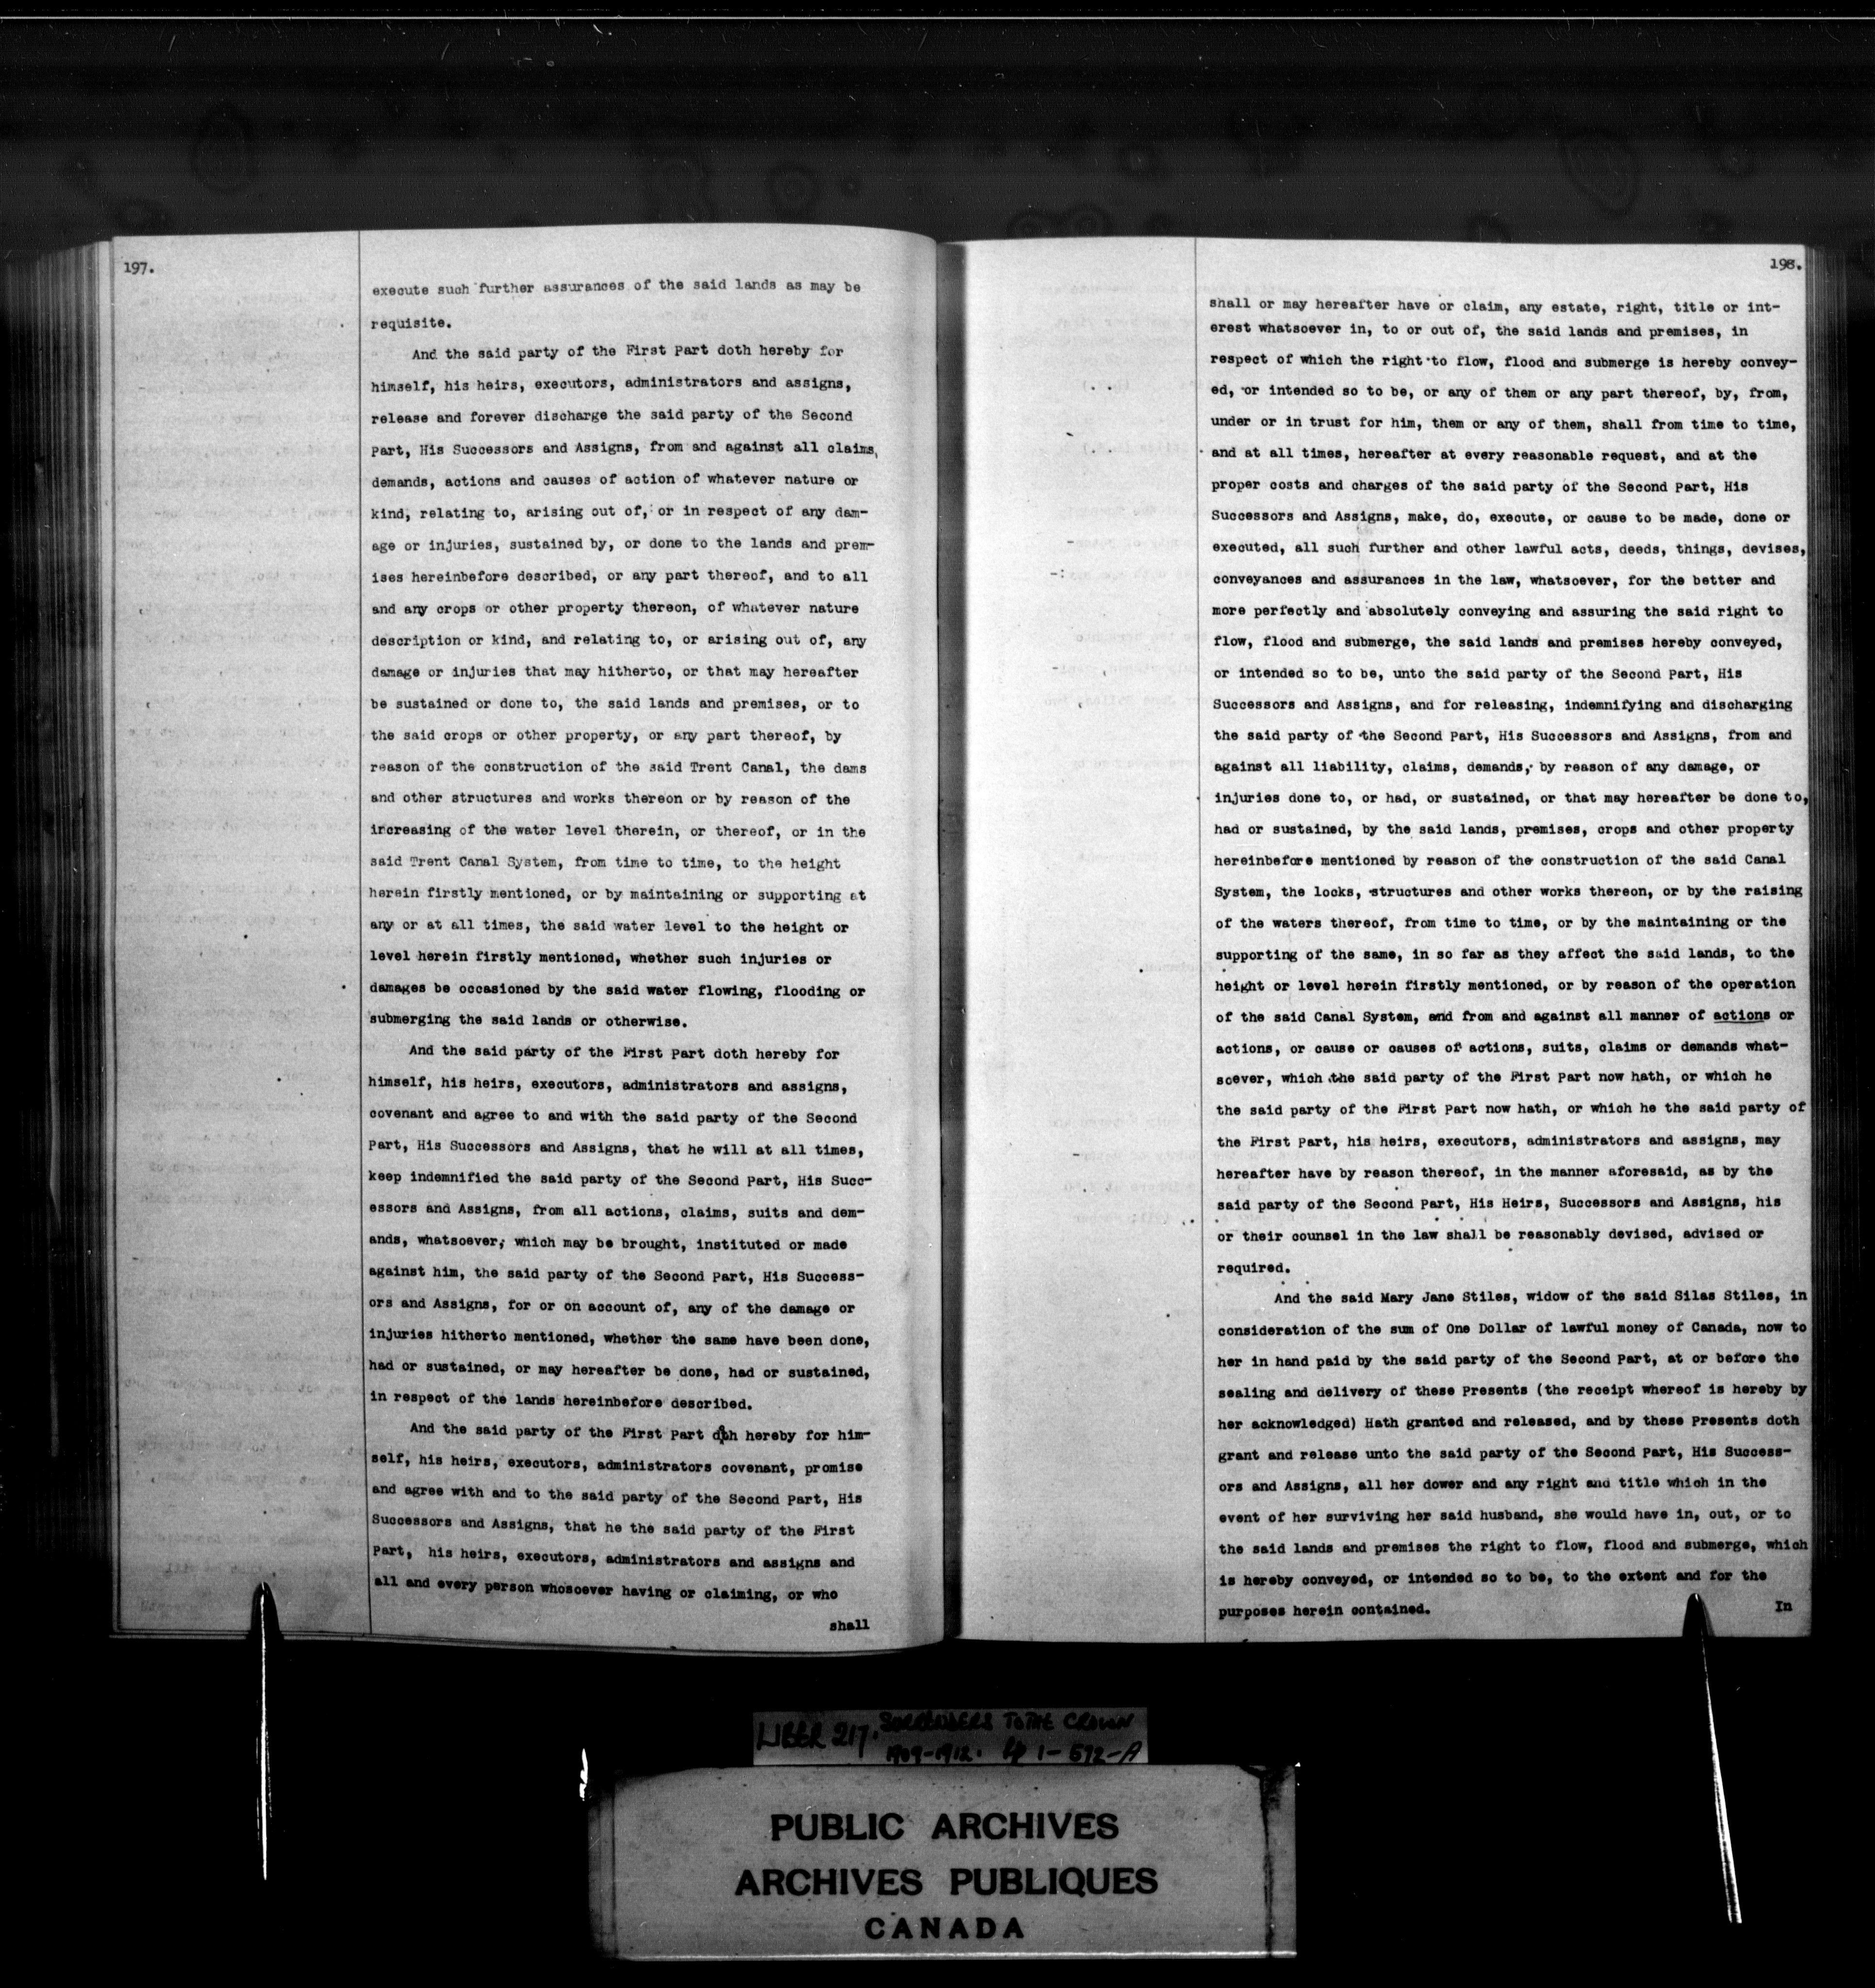 197.
execute such further assurances of the said lands as may be
requisite.
And the said party of the First Part doth hereby for
himself, his heirs, executors, administrators and assigns,
release and forever discharge the said party of the Second
Part, His Successors and Assigns, from and against all claims,
demands, actions and causes of action of whatever nature or
kind, relating to, arising out of, or in respect of any dam-
age or injuries, sustained by, or done to the lands and prem-
ises hereinbefore described, or any part thereof, and to all
and any crops or other property thereon, of whatever nature
description or kind, and relating to, or arising out of, any
damage or injuries that may hitherto, or that may hereafter
be sustained or done to, the said lands and premises, or to
the said crops or other property, or any part thereof, by
reason of the construction of the said Trent Canal, the dams
and other structures and works thereon or by reason of the
increasing of the water level therein, or thereof, or in the
said Trent Canal System, from time to time, to the height
herein firstly mentioned, or by maintaining or supporting at
any or at all times, the said water level to the height or
level herein firstly mentioned, whether such injuries or
damages be occasioned by the said water flowing, flooding or
submerging the said lands or otherwise.
And the said party of the First Part doth hereby for
himself, his heirs, executors, administrators and assigns,
covenant and agree to and with the said party of the Second
Part, His Successors and Assigns, that he will at all times,
keep indemnified the said party of the Second Part, His Succ-
essors and Assigns, from all actions, claims, suits and dem-
ands, whatsoever, which may be brought, instituted or made
against him, the said party of the Second Part, His Success-
ors and Assigns, for or on account of, any of the damage or
injuries hitherto mentioned, whether the same have been done,
had or sustained, or may hereafter be done, had or sustained,
in respect of the lands hereinbefore described.
And the said party of the First Part doth hereby for him-
self, his heirs, executors, administrators covenant, promise
and agree with and to the said party of the Second Part, His
Successors and Assigns, that he the said party of the First
Part, his heirs, executors, administrators and assigns and
all and every person whosoever having or claiming, or who
shall
198.
shall or may hereafter have or claim, any estate, right, title or int-
erest whatsoever in, to or out of, the said lands and premises, in
respect of which the right to flow, flood and submerge is hereby convey-
ed, or intended so to be, or any of them or any part thereof, by, from,
under or in trust for him, them or any of them, shall from time to time,
and at all times, hereafter at every reasonable request, and at the
proper costs and charges of the said party of the Second Part, His
Successors and Assigns, make, do, execute, or cause to be made, done or
executed, all such further and other lawful acts, deeds, things, devises,
conveyances and assurances in the law, whatsoever, for the better and
more perfectly and absolutely conveying and assuring the said right to
flow, flood and submerge, the said lands and premises hereby conveyed,
or intended so to be, unto the said party of the Second Part, His
Successors and Assigns, and for releasing, indemnifying and discharging
the said party of the Second Part, His Successors and Assigns, from and
against all liability, claims, demands, by reason of any damage, or
injuries done to, or had, or sustained, or that may hereafter be done to,
had or sustained, by the said lands, premises, crops and other property
hereinbefore mentioned by reason of the construction of the said Canal
System, the locks, structures and other works thereon, or by the raising
of the waters thereof, from time to time, or by the maintaining or the
supporting of the same, in so far as they affect the said lands, to the
height or level herein firstly mentioned, or by reason of the operation
of the said Canal System, and from and against all manner of actions or
actions, or cause or causes of actions, suits, claims or demands what-
soever, which the said party of the First Part now hath, or which he
the said party of the First Part now hath, or which he the said party of
the First Part, his heirs, executors, administrators and assigns, may
hereafter have by reason thereof, in the manner aforesaid, as by the
said party of the Second Part, His Heirs, Successors and Assigns, his
or their counsel in the law shall be reasonably devised, advised or
required.
And the said Mary Jane Stiles, widow of the said Silas Stiles, in
consideration of the sum of One Dollar of lawful money of Canada, now to
her in hand paid by the said party of the Second Part, at or before the
sealing and delivery of these Presents (the receipt whereof is hereby by
her acknowledged) Hath granted and released, and by these Presents doth
grant and release unto the said party of the Second Part, His Success-
ors and Assigns, all her dower and any right and title which in the
event of her surviving her said husband, she would have in, out, or to
the said lands and premises the right to flow, flood and submerge, which
is hereby conveyed, or intended so to be, to the extent and for the
purposes herein contained.
In
LIBER 217. SURRENDERS TO THE CROWN
1909-1912. pp 1-592-A
PUBLIC ARCHIVES
ARCHIVES PUBLIQUES
CANADA